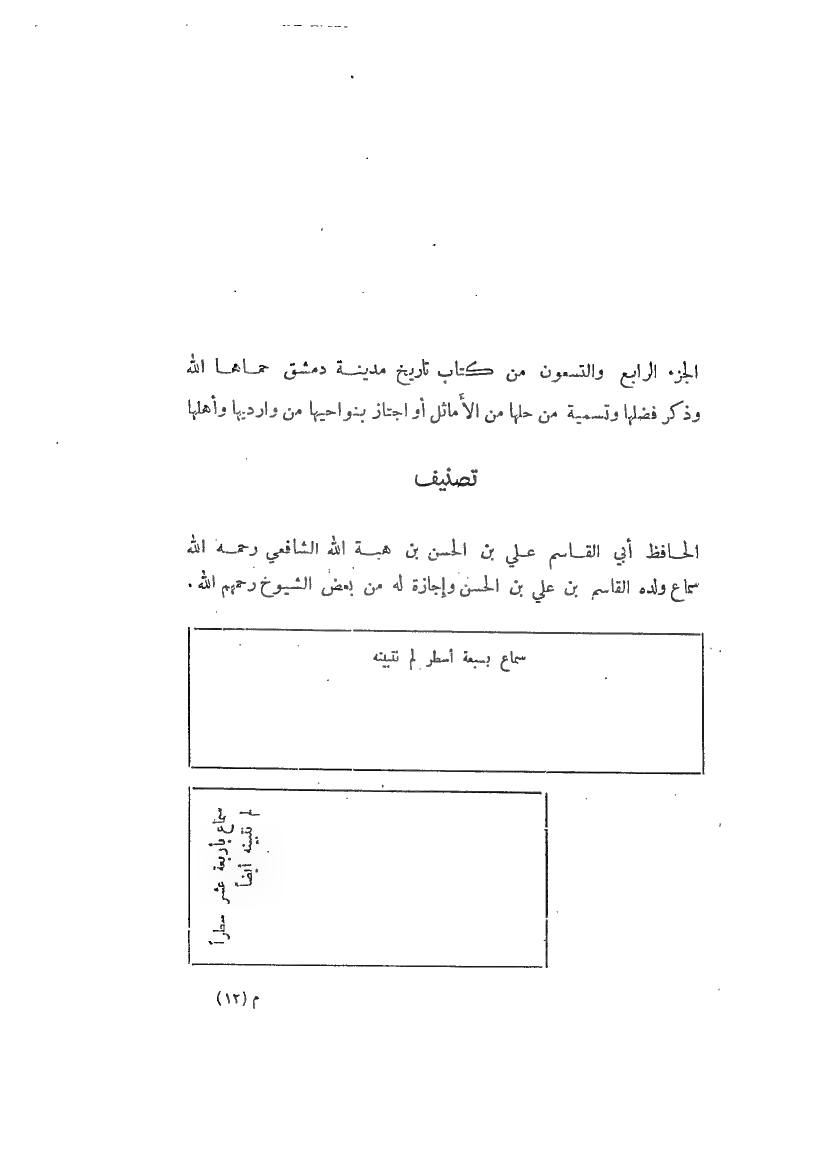 الجزء الرابع والتسعون من كتاب تاريخ مدينة دمشق حماها الله
وذكر فضلها وتسمية من حلها من الأماثل أو اجتاز بنواحيها من وارديها وأهلها
تصنيف
الحافظ أبي القاسم علي بن الحسن بن هبة الله الشافعي رحمه الله
سماع ولده القاسم بن علي بن الحسن وإجازة له من بعض الشيوخ رحمهم الله.
سماع بسبعة أسطر لم نتبينه
سماع بأربعة عشر سطراً
لم نتبينه أيضاً
م (١٢)